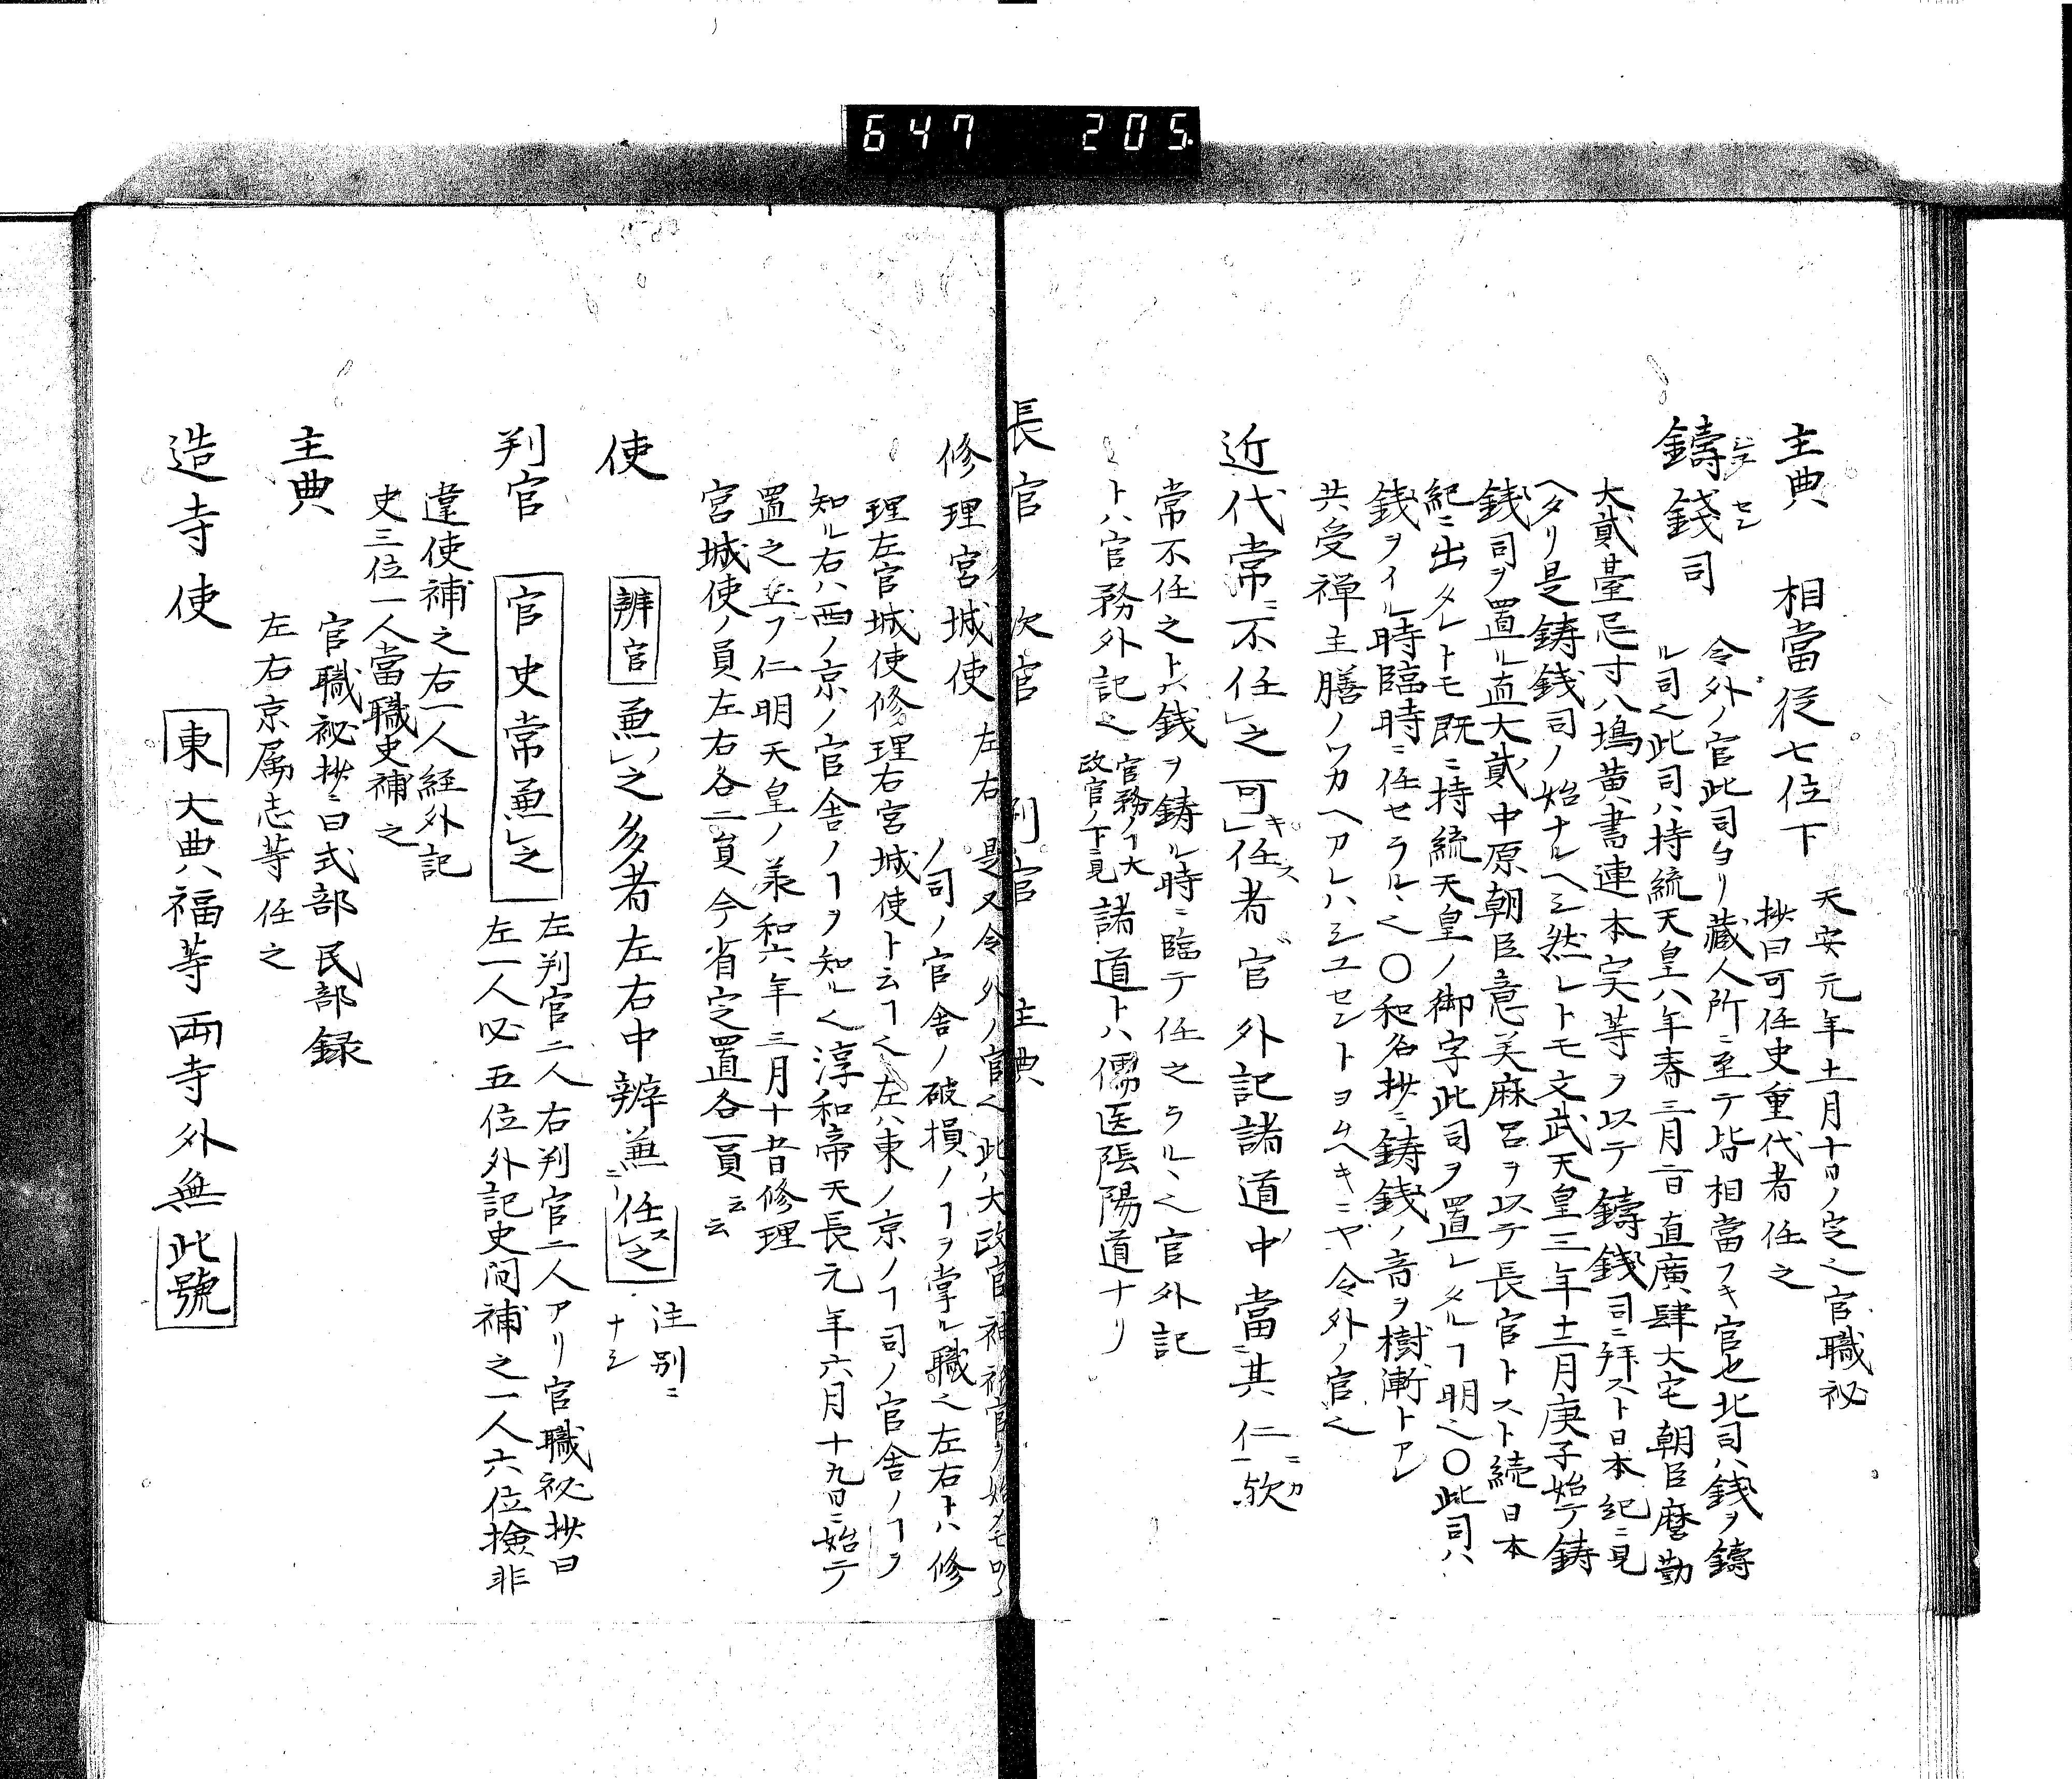 647 205
主典 相當從七位下 天安元年十一月十日ノ定之官職祕
抄曰可任史重代者任之
鑄錢司 令外ノ官此司ヨリ藏人所ニ至テ皆相當フキ官也此司ハ錢ヲ鑄
ル司也此司ハ持統天皇八年春三月二日直廣肆大宅朝臣麿勤
大貳臺忌寸八嶋黄書連本実等ヲ以テ鑄錢司ニ拜スト日本紀ニ見
ヘタリ是鋳錢司ノ始ナルヘシ然レトモ文武天皇三年十二月庚子始テ鋳
銭司ヲ置ル直大貳中原朝臣意美麻呂ヲ以テ長官トスト続日本
紀ニ出タレトモ既ニ持統天皇ノ御字此司ヲ置レタルヿ明也〇此司ハ
銭ヲイル時臨時ニ任セラルヽ也〇和名抄ニ鋳銭ノ音ヲ樹漸トアレ
共受禅主膳ノワカヘアレハシユセントヨムヘキニヤ令外ノ官也
近代常ニ不任之可任者官外記諸道中當其仁歟
常不任之トハ銭ヲ鋳ル時ニ臨テ任之ラルヽ也官外記
トハ官務外記也 官務ノヿ大
政官ノ下ニ見 諸道トハ儒医陰陽道ナリ
長官 次官 判官 主典
修理宮城使 左右 是又令外ノ官也此ハ大政官神祇官ヲ始メ
ノ司ノ官舎ノ破損ノヿヲ掌ル職也左右トハ修
理左宮城使修理右宮城使ト云ヿ也左ハ東ノ京ノヿ司ノ官舎ノヿヲ
知ル右ハ西ノ京ノ官舎ノヿヲ知ル也淳和帝天長元年六月十九日ニ始テ
置之玉フ仁明天皇ノ承和六年三月十昔修理
宮城使ノ員左右各二員今省定置各一員云云
使 辨官兼之多者左右中辨兼任之 注別ニ
ナシ
判官 官史常兼之 左判官二人右判官二人アリ官職祕抄曰
左一人必五位外記史间補之一人六位撿非
違使補之右一人経外記
史三位一人當職史補之
主典 官職祕抄ニ曰式部民部録
左右京属志等任之
造寺使 東大興福等両寺外無此號